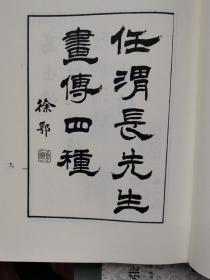 任渭長先生
畫傳四種
徐邨
九